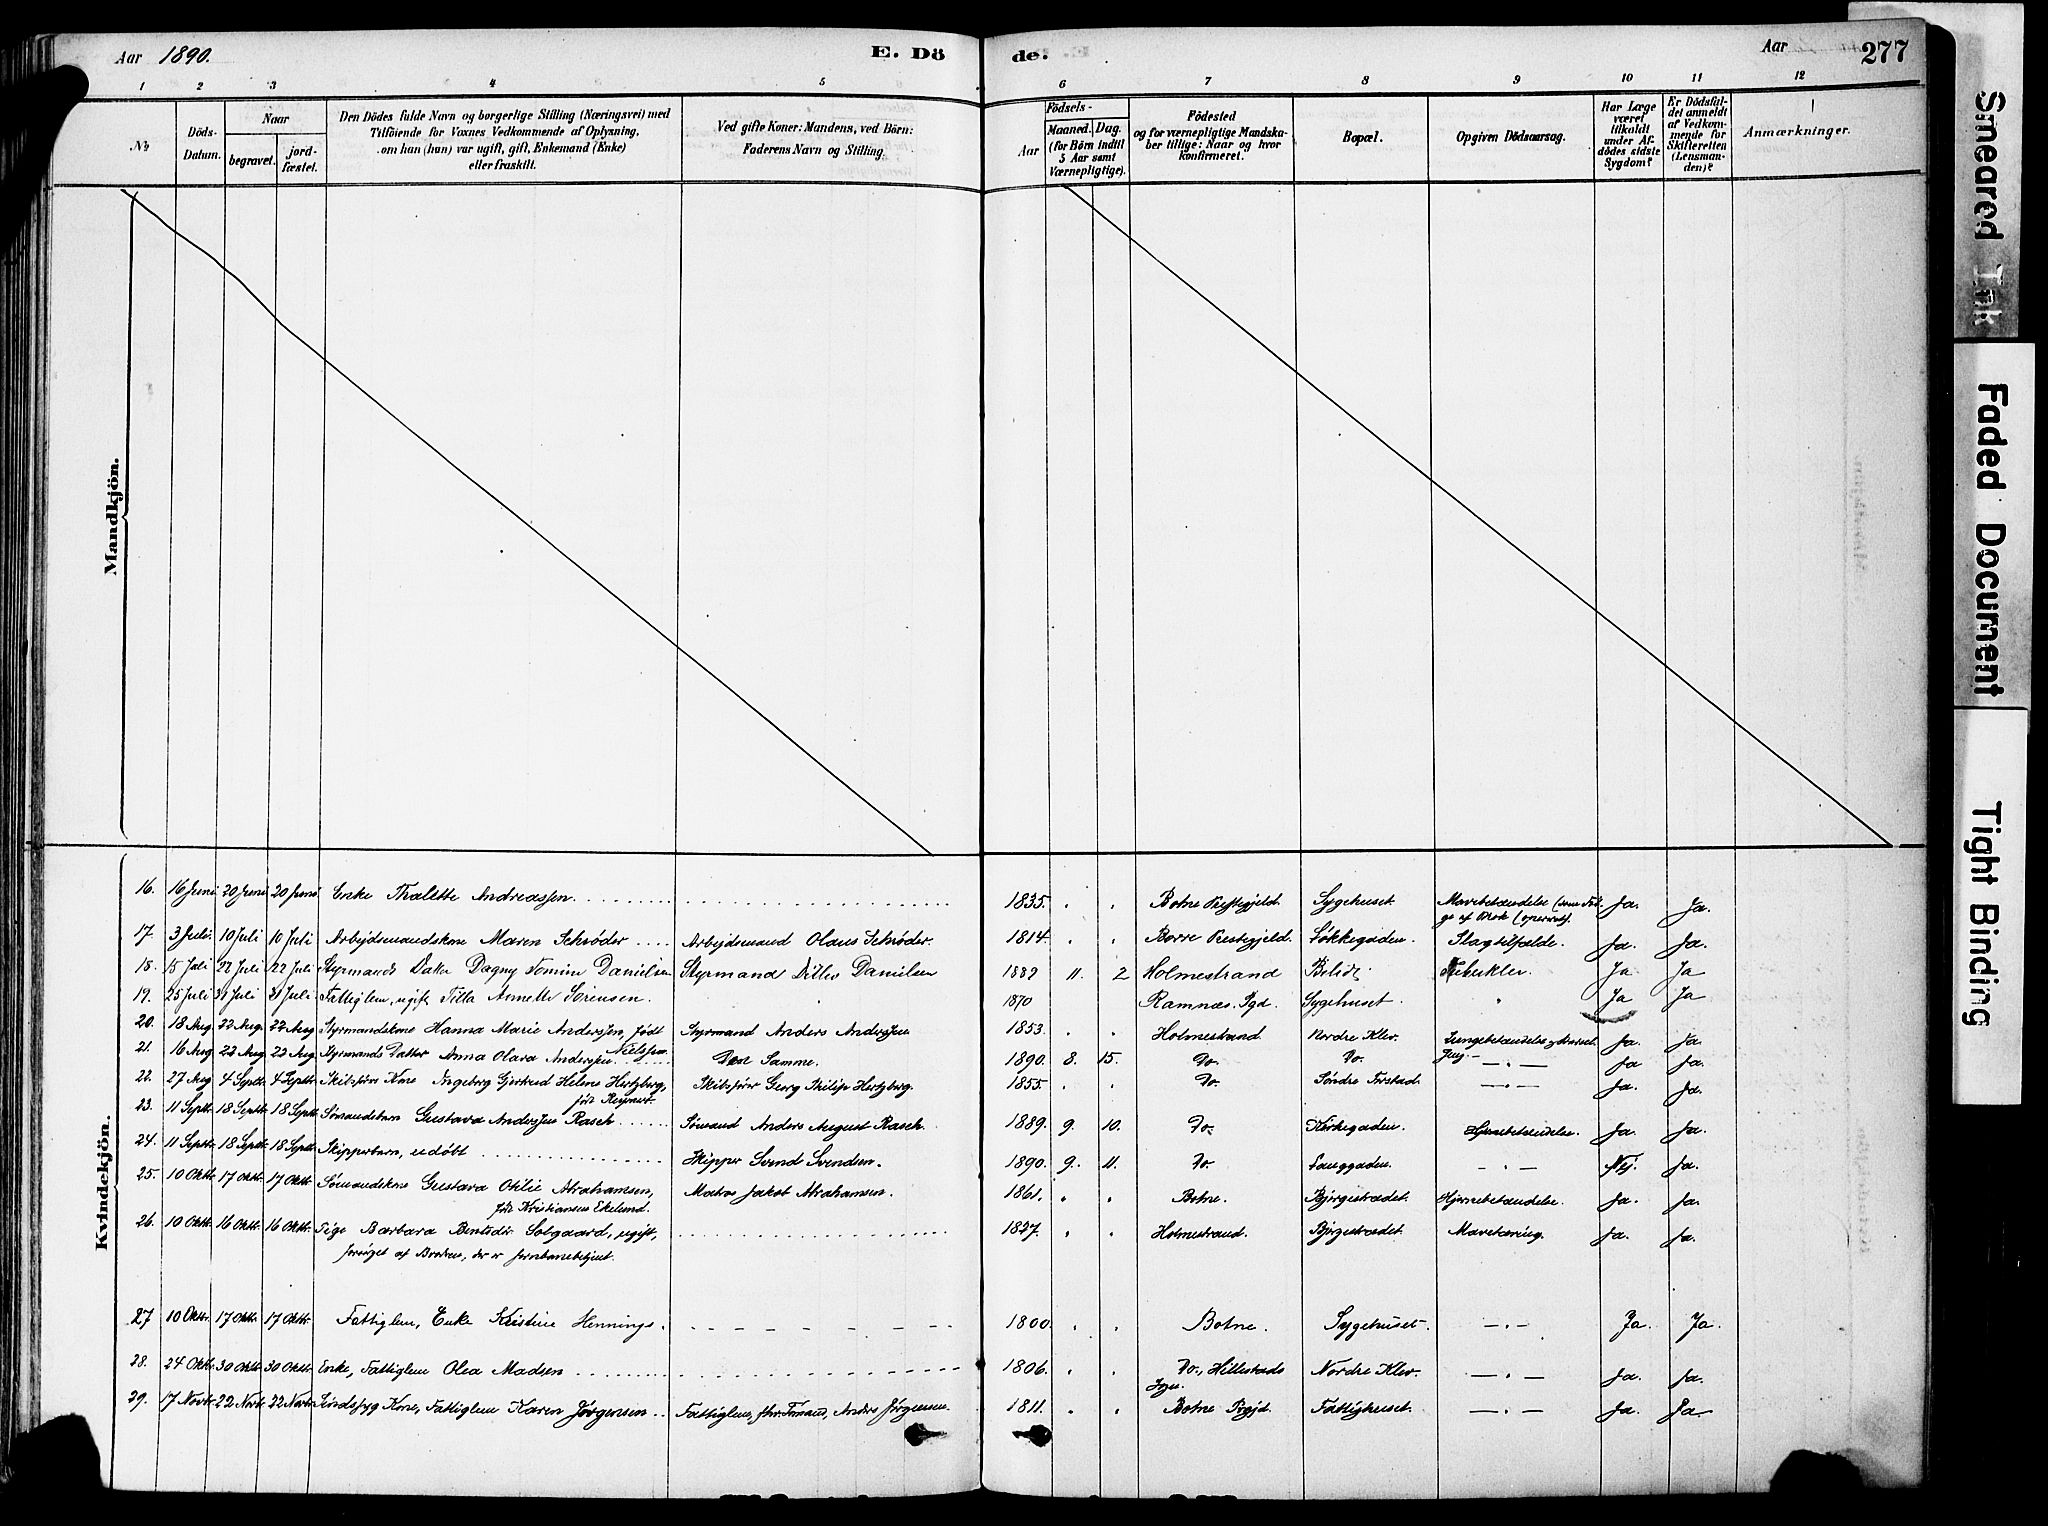 Aar 1890.
E. Dö
de.
Aar
277
1 2 3 4 5 6 7 8 9 10 11 12
No
Döds-Datum.
Naar
begravet.
jord-fæstet.
Den Dödes fulde Navn og borgerlige Stilling (Næringsvei) med
Tilföiende for Voxnes Vedkommende af Oplysning,
om han (hun) var ugift, gift, Enkemand (Enke)
eller fraskilt.
Ved gifte Koner: Mandens, ved Börn:
Faderens Navn og Stilling.
Födsels-
Aar
Maaned. Dag.
(for Börn indtil
5 Aar samt
Værnepligtige).
Födested
og for værnepligtige Mandska-
ber tillige: Naar og hvor
konfirmeret.
Bopæl.
Opgiven Dödsaarsag.
Har Læge
været
tilkaldt
under Af-
dödes sidste
Sygdom?
Er Dödsfal-
det anmeldt
af Vedkom-
mende for
Skifteretten
(Lensman-
den)?
Anmærkninger.
Mandkjön.
Kvindekjön.
16. 16 Juni 20 Juni 20 Juni Enke Thalette Andreassen. 1835. Botne Præstegjeld. Sygehuset Mavebetændelse Ja. Ja.
17. 3 Juli 10 Juli 10 Juli Arbejdsmandskone Maren Schrøder Arbejdsmand Olaus Schrøder. 1814. Borre Præstegjeld. Løkkegaden. Slagtilfælde. Ja. Ja.
18. 15 Juli 22 Juli 22 Juli Styrmands Datter Dagny Tomine Danielsen Styrmand Ditlev Danielsen 1889 11. 2 Holmestrand Tuberkler. Ja Ja
19. 25 Juli 31 Juli 31 Juli Fattiglem, ugift Annette Sørensen. 1870 Ramnæs. Pgd. Sygehuset. " Ja Ja
20. 18 Aug. 22 Aug. 22 Aug Styrmandskone Hanna Marie Anderssen, født Nielssen Styrmand Anders Anderssen 1853. Holmestrand Nordre Klev. Lungebetændelse Ja. Ja.
21. 16 Aug 22 Aug 22 Aug Styrmands Datter Anna Olava Anderssen Den Samme. 1890. 8. 15. Do. Do. — " — Ja Ja.
22. 27 Aug 4 Septbr. 4 Septbr. Skibsfører Kone Ingeborg Gjertrud Helene Hertzberg, født Skibsfører Georg Philip Hertzberg. 1855. Do. Søndre — " — Ja. Ja.
23. 11 Septbr. 18 Septbr. 18 Septbr. Sømandsbarn Gustava Anderssen Rasch Sømand Anders August Rasch. 1889. 9. 10. Do. Kirkegaden. Hjernebetændelse. Ja. Ja.
24. 11 Septbr. 18 Septbr. 18 Septbr. Skipperbarn, udøbt Skipper Svend Svendsen. 1890. 9. 11. Do. Langgaden. — " — Nej. Ja.
25. 10 Oktbr. 17 Oktbr. 17 Oktbr. Sømandskone Gustava Otilie Abrahamsen, født Kristiansen Ekelund. Matros Jakob Abrahamsen. 1861. Botne. Bjørgestrædet. Hjernebetændelse. Ja. Ja.
26. 10 Oktbr. 16 Oktbr. 16 Oktbr. Pige Barbara Solgaard, ugift, 1827. Holmestrand. Bjørgestrædet. Mavetæring. Ja. Ja.
forsørget af Broderen, der er Jernbanebetjent.
27 10 Oktbr. 17 Oktbr. 17 Oktbr. Fattiglem, Enke Kristine Hennings. 1800. Botne. Sygehuset. — " — Ja. Ja.
28. 24 Oktbr. 30 Oktbr. 30 Oktbr. Enke, Fattiglem Olea Madsen 1806. Do., Hillestads Sogn. Nordre Klev. — " — Ja. Ja.
29. 17 Novbr. 22 Novbr. 22 Novbr. Sindssyg Kone, Fattiglem Karen Jørgensen Fattiglem, fhv. Anders Jørgensen. 1811. Botne Prgjd. Fattighuset. — " — Ja. Ja.
Smeared Ink
Faded Document
Tight Binding